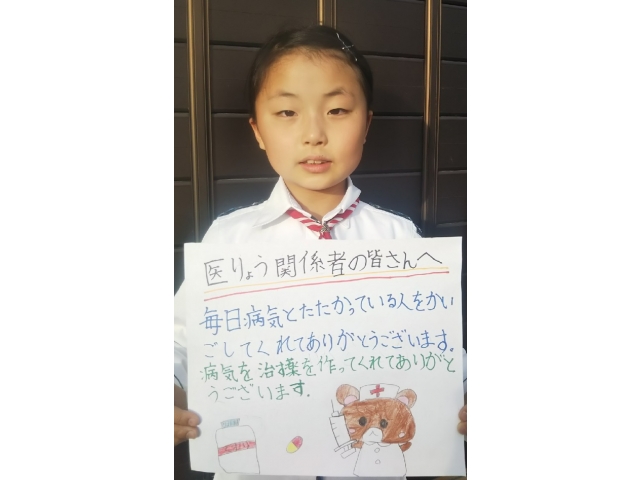 医りょう関係者の皆さんへ
毎日病気とたたかっている人をかい
ごしてくれてありがとうございます.
病気を治す薬を作ってくれてありがと
うございます.